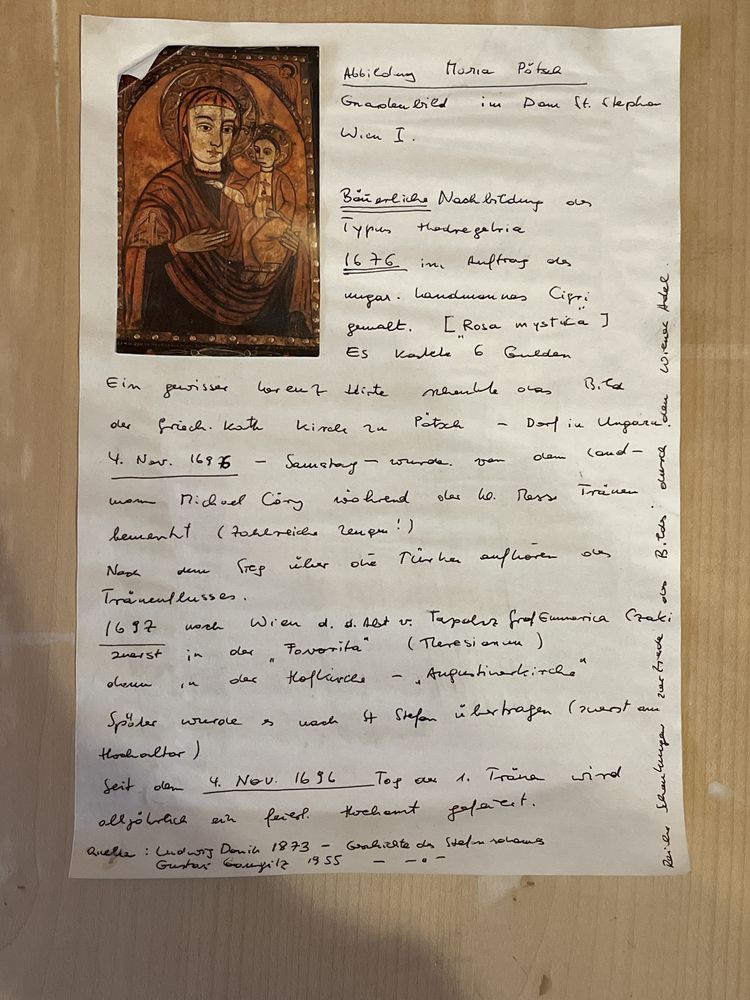 Abbildung Maria Pötsch
Gnadenbild im Dom St. Stephan
Wien I.
Bäuerliche Nachbildung des
Typus Hodregetria
1676 im Auftrag des
ungar. Landmannes Cigri
gemalt. ["Rosa mystica"]
Es kostete 6 Gulden
Ein gewisser Lorenz Hirte schenkte das Bild
der griech. Kath Kirche zu Pötsch - Dorf in Ungarn.
4. Nov. 1696 - Samstag - wurde von dem Land-
mann Michael Cöry während der hl. Messe Tränen
bemerkt (Zahlreiche Zeugen!)
Nach dem Sieg über die Türken aufhören des
Tränenflusses.
1697 nach Wien d. d. Abt v. Tapolcz Graf Emmerica Czaki
zuerst in der "Favorita" (Theresianum)
dann in der Hofkirche - "Augustinerkirche"
Später wurde es nach St Stefan übertragen (zuerst am
Hochaltar)
Seit dem 4. Nov. 1696 Tag der 1. Träne wird
alljährlich ein feierl. Hochamt gefeiert.
Quellen: Ludwig Donin 1873 - Geschichte des Stefansdomes
Gustav 1955 - -"-
Reiche Schenkungen zur des Bildes durch den Wiener Adel.